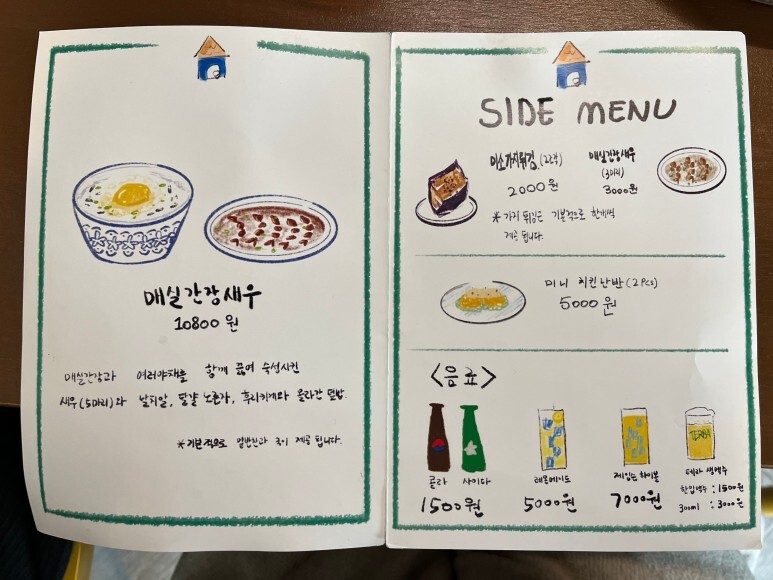 매실간장새우
10800 원
매실간장과 여러야채를 함께 끓여 숙성시킨
새우(5마리)와 날치알, 달걀 노른자, 후리카케와 올라간 덮밥.
*기본적으로 밑반찬과 국이 제공 됩니다.
SIDE MENU
미소가지튀김.
2000원
매실간장새우
(3마리)
3000원
*가지 튀김은 기본적으로 한개씩
제공 됩니다.
미니 치킨난반 (2 Pcs)
5000원
<음료>
콜라 사이다
1500원
레몬에이드
5000원
제임슨 하이볼
7000원
TERRA
테라 생맥주
한입맥주 : 1500원
300ml : 3000원